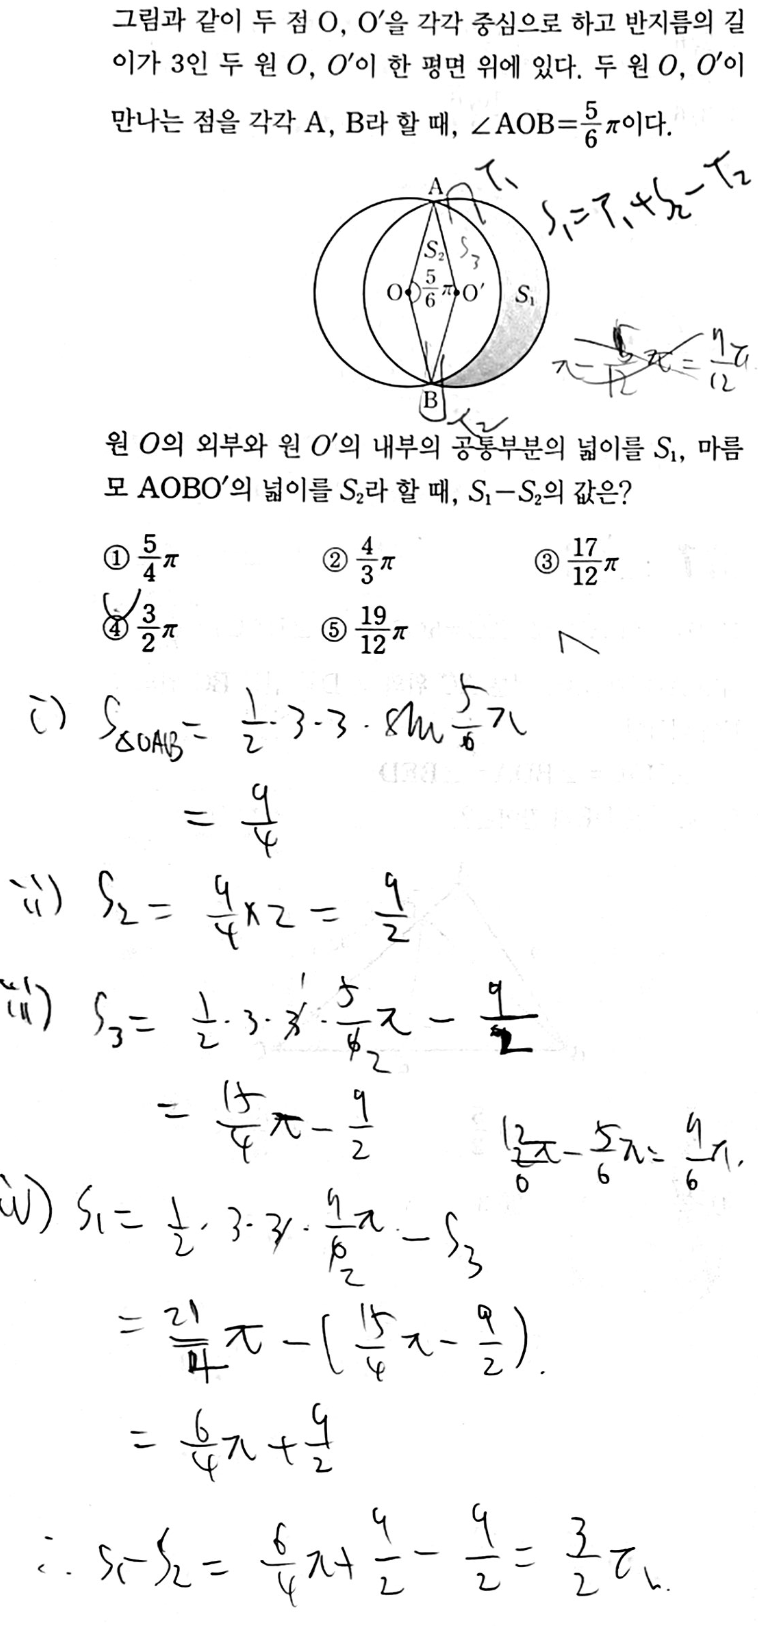 그림과 같이 두 점 O, O′을 각각 중심으로 하고 반지름의 길
이가 3인 두 원 O, O′이 한 평면 위에 있다. 두 원 O, O′이
만나는 점을 각각 A, B라 할 때, ∠AOB=5/6 π이다.
A T₁
S₁=T₁+S₂-T₂
S₂ S₃
O 5/6 π O′ S₁
B
π - 5/12 π = 7/12 π
원 O의 외부와 원 O′의 내부의 공통부분의 넓이를 S₁, 마름
모 AOBO′의 넓이를 S₂라 할 때, S₁-S₂의 값은?
① 5/4 π ② 4/3 π ③ 17/12 π
④ 3/2 π ⑤ 19/12 π
i) S△OAB = 1/2 · 3 · 3 · sin 5/6 π
= 9/4
ii) S₂ = 9/4 × 2 = 9/2
iii) S₃ = 1/2 · 3 · 3 · 5/6 π - 9/2
= 15/4 π - 9/2
12/6 π - 5/6 π = 7/6 π.
iv) S₁ = 1/2 · 3 · 3 · 7/6 π - S₃
= 21/4 π - (15/4 π - 9/2).
= 6/4 π + 9/2
∴ S₁-S₂ = 6/4 π + 9/2 - 9/2 = 3/2 π